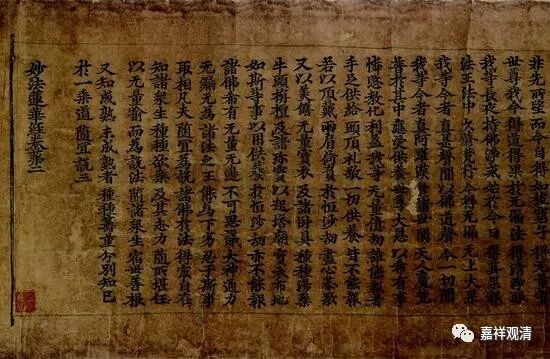 非先所望 而今自得 如彼窮子 得无量寶
世尊我今 得道得果 於无漏法 得清淨眼
我等長夜 持佛淨戒 始於今日 得其果報
法王法中 久修梵行 今得无漏 无上大果
我等今者 真是聲聞 以佛道聲 令一切聞
我等今者 真阿羅漢 於諸世間 天人魔梵
普於其中 應受供養 世尊大恩 以希有事
憐愍教化 利益我等 无量億劫 誰能報者
手足供給 頭頂礼敬 一切供養 皆不能報
若以頂戴 兩肩荷負 於恒沙劫 盡心恭敬
又以美饍 无量寶衣 及諸臥具 種種湯藥
牛頭栴檀 及諸珍寶 以起塔廟 寶衣布地
如斯等事 以用供養 於恒沙劫 亦不能報
諸佛希有 无量无邊 不可思議 大神通力
无漏无為 諸法之王 能為下劣 忍于斯事
取相凡夫 隨宜為說 諸佛於法 得最自在
知諸衆生 種種欲樂 及其志力 隨所堪任
以无量喻 而為說法 隨諸衆生 宿世善根
又知成熟 未成熟者 種種籌量 分別知已
於一乘道 隨宜說三
妙法蓮華經卷第二
嘉祥观清